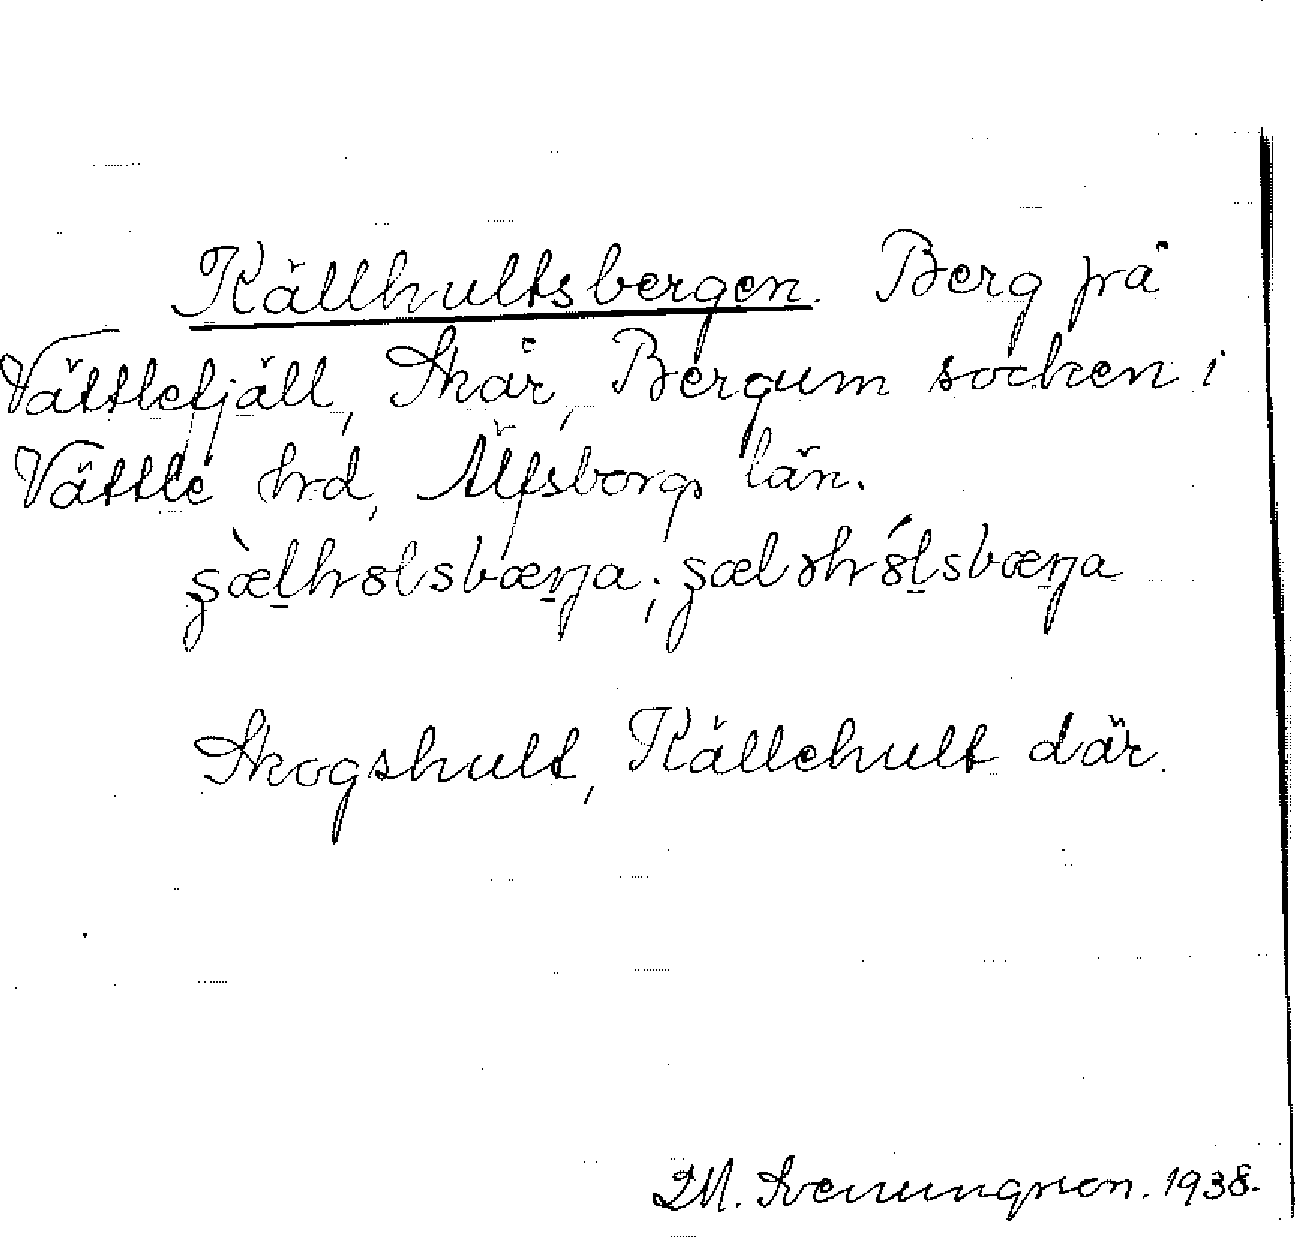 Källhultsbergen. Berg på
Vättlefjäll, Skår, Bergum socken i
Vättle hrd, Älfsborgs län.
Skogshult, Källehult där.
M. Svenungsson. 1938.